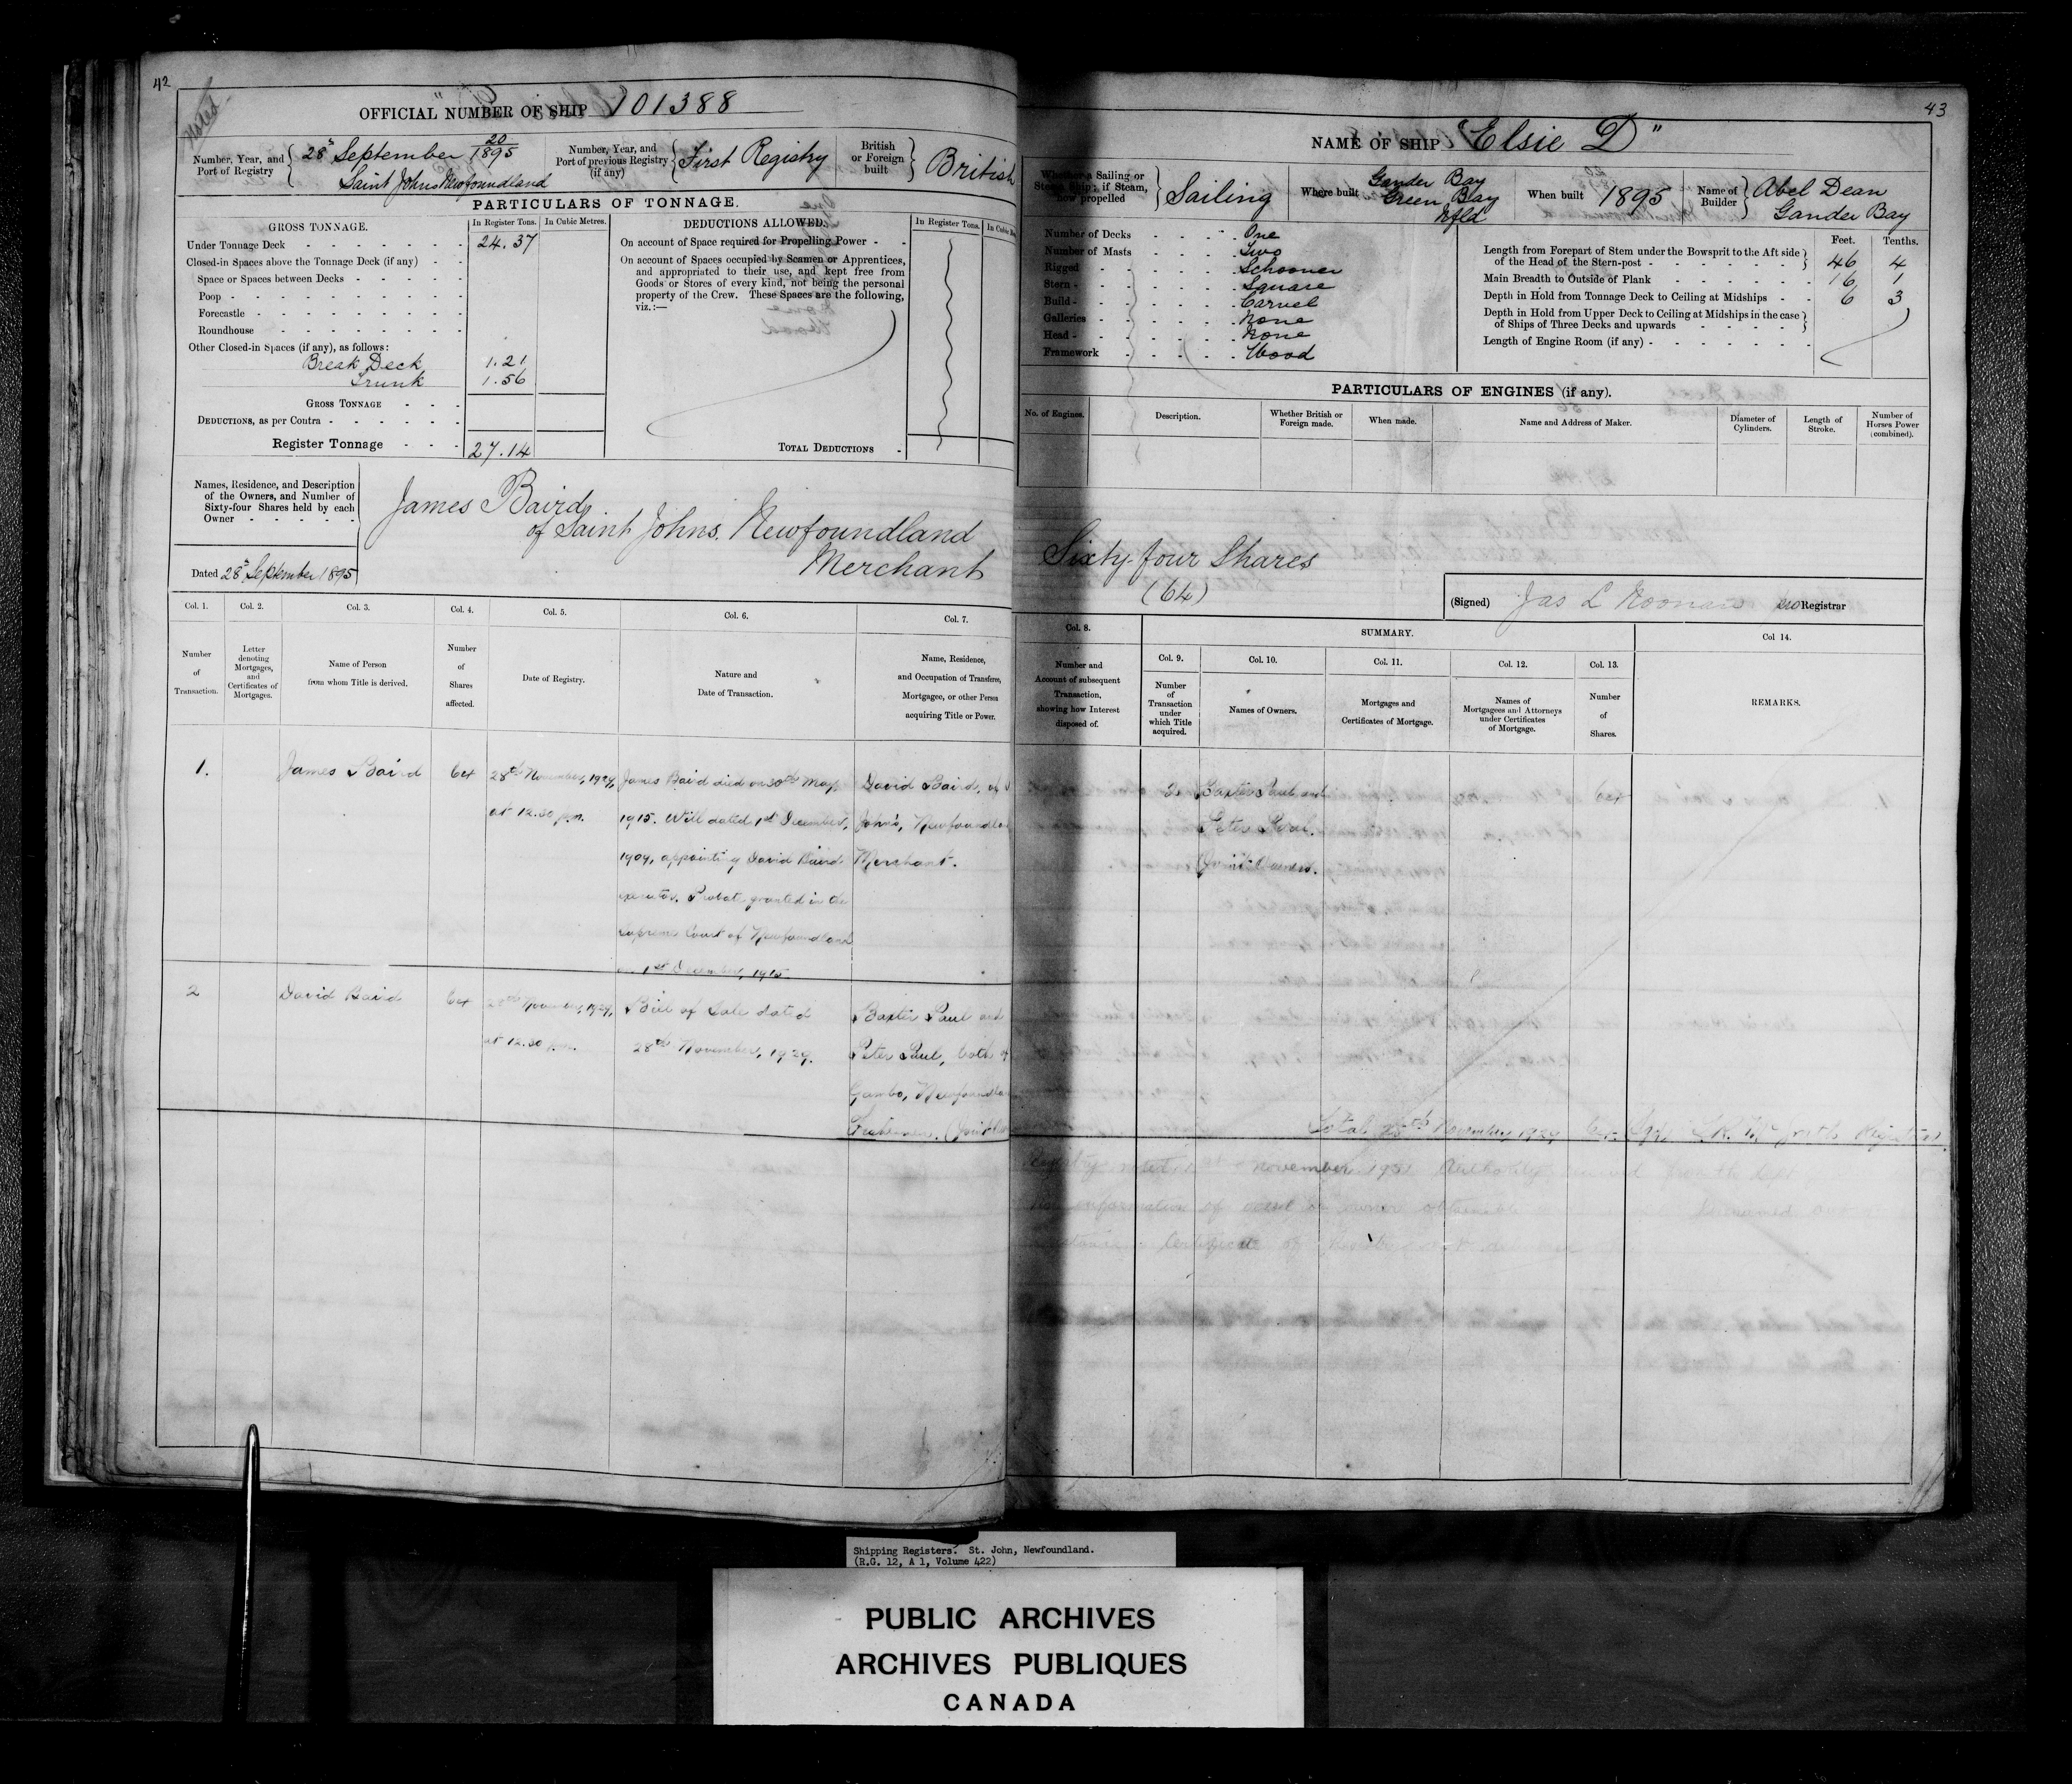 42
Noted
OFFICIAL NUMBER OF SHIP 101388
Number, Year, and Port of Registry
28th September 20/1895
Saint Johns Newfoundland
Number, Year, and Port of previous Registry (if any)
First Registry
British or Foreign built
British
PARTICULARS OF TONNAGE.
GROSS TONNAGE.
In Register Tons.
In Cubic Metres.
Under Tonnage Deck 24.37
Closed-in Spaces above the Tonnage Deck (if any)
Space or Spaces between Decks
Poop
Forecastle
Roundhouse
Other Closed-in Spaces (if any), as follows:
Break Deck 1.21
Trunk 1.56
GROSS TONNAGE
DEDUCTIONS, as per Contra
Register Tonnage 27.14
DEDUCTIONS ALLOWED.
In Register Tons.
On account of Space required for Propelling Power
On account of Spaces occupied by Seamen or Apprentices,
and appropriated to their use, and kept free from
Goods or Stores of every kind, not being the personal
property of the Crew. These Spaces are the following,
viz.:—
TOTAL DEDUCTIONS
Names, Residence, and Description
of the Owners, and Number of
Sixty-four Shares held by each
Owner
Dated 28th September 1895
James Baird,
of Saint Johns. Newfoundland
Merchant
Col. 1.
Number of Transaction.
Col. 2.
Letter denoting Mortgages, and Certificates of Mortgages.
Col. 3.
Name of Person from whom Title is derived.
Col. 4.
Number of Shares affected.
Col. 5.
Date of Registry.
Col. 6.
Nature and Date of Transaction.
Col. 7.
Name, Residence, and Occupation of Transferee, Mortgagee, or other Person acquiring Title or Power.
1.
James Baird
64
28th November, 1929,
at 12.30 p.m.
James Baird died on 30th May,
1915. Will dated 1st December,
1909, appointing David Baird
executor. Probate granted in the
Supreme Court of Newfoundland
on 1st December, 1915.
David Baird, of
John's, Newfoundland
Merchant.
2
David Baird
64
28th November, 1929,
at 12.30 p.m.
Bill of Sale dated
28th November, 1929.
Baxter Paul and
Peter Paul, both of
Gambo, Newfoundland
Fishermen. (Joint
43
NAME OF SHIP "Elsie D"
Whether a Sailing or Steam Ship; if Steam, how propelled
Sailing
Where built
Gander Bay
Green Bay
Nfld
When built 1895
Name of Builder
Abel Dean
Gander Bay
Number of Decks One
Number of Masts Two
Rigged Schooner
Stern Square
Build Carvel
Galleries None
Head None
Framework Wood
Feet. Tenths.
Length from Forepart of Stem under the Bowsprit to the Aft side
of the Head of the Stern-post 46 4
Main Breadth to Outside of Plank 16 1
Depth in Hold from Tonnage Deck to Ceiling at Midships 6 3
Depth in Hold from Upper Deck to Ceiling at Midships in the case
of Ships of Three Decks and upwards
Length of Engine Room (if any)
PARTICULARS OF ENGINES (if any).
No. of Engines.
Description.
Whether British or Foreign made.
When made.
Name and Address of Maker.
Diameter of Cylinders.
Length of Stroke.
Number of Horses Power (combined).
Sixty-four Shares
(64)
(Signed) Jas L Noonan Registrar
Col. 8.
Number and Account of subsequent Transaction, showing how Interest disposed of.
SUMMARY.
Col. 9.
Number of Transaction under which Title acquired.
Col. 10.
Names of Owners.
Col. 11.
Mortgages and Certificates of Mortgage.
Col. 12.
Names of Mortgagees and Attorneys under Certificates of Mortgage.
Col. 13.
Number of Shares.
Col 14.
REMARKS.
2
Baxter Paul and
Peter Paul.
Joint Owners.
64
Total November, 1929 Registrar
November 1951
information of owner obtainable
Certificate of
Shipping Registers. St. John, Newfoundland.
(R.G. 12, A 1, Volume 422)
PUBLIC ARCHIVES
ARCHIVES PUBLIQUES
CANADA